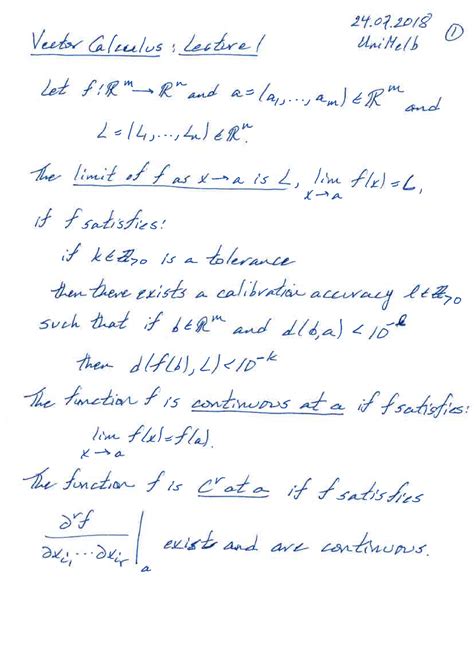 24.07.2018 ①
Vector Calculus: Lecture 1 UniMelb
Let f: ℝᵐ → ℝⁿ and a = (a₁, ..., aₘ) ∈ ℝᵐ and
L = (L₁, ..., Lₙ) ∈ ℝⁿ.
The limit of f as x→a is L, lim_{x→a} f(x) = L,
if f satisfies:
if k ∈ ℤ_{>0} is a tolerance
then there exists a calibration accuracy l ∈ ℤ_{>0}
such that if b ∈ ℝᵐ and d(b,a) < 10^{-l}
then d(f(b), L) < 10^{-k}
The function f is continuous at a if f satisfies:
lim_{x→a} f(x) = f(a).
The function f is Cʳ at a if f satisfies
∂ʳf / ∂x_{i₁} ... ∂x_{iᵣ} |_a exist and are continuous.